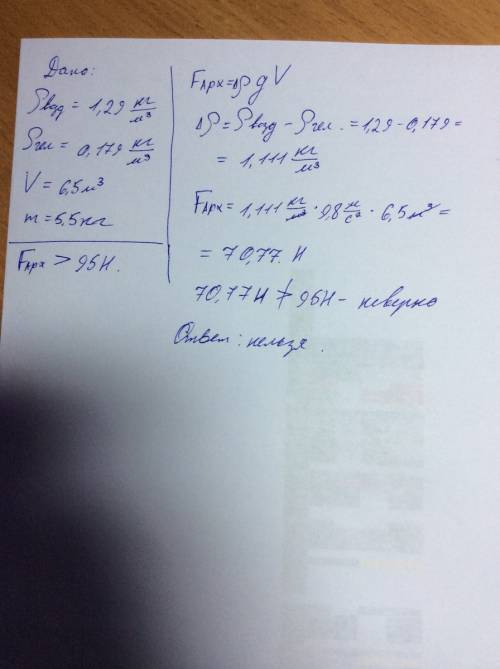 Дано:
ρвозд = 1,29 кг/м³
ρгел = 0,179 кг/м³
V = 6,5 м³
m = 5,5 кг
Fарх > 95Н.
Fарх = Δρ g V
Δρ = ρвозд – ρгел. = 1,29 – 0,179 =
= 1,111 кг/м³
Fарх = 1,111 кг/м³ · 9,8 м/с² · 6,5 м³ =
= 70,77 Н
70,77 Н ≯ 95Н – неверно
Ответ: нельзя.